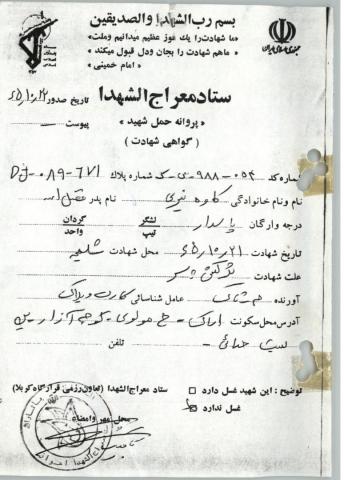 بسم رب الشهدا والصدیقین
«ما شهادت را یك فوز عظیم میدانیم وملت»
«ما هم شهادت را بجان ودل قبول میکند»
« امام خمینی »
جمهوری اسلامی ایران
ستاد معراج الشهدا
تاریخ صدور ۶۵/۱۰/۲۲
« پروانه حمل شهید »
پیوست
( گواهی شهادت )
شماره کد ۰۵۴-۹۸۸-ی-ک شماره پلاك DJ-۰۸۹-۶۷۱
نام ونام خانوادگی کاوه نبیری نام پدر فضل اله
درجه وارگان پاسدار لشگر تیپ گردان واحد
تاریخ شهادت ۶۵/۱۰/۲۱ محل شهادت شلمچه
علت شهادت ترکش سر
آورنده عامل شناسائی کارت و پلاک
آدرس محل سکونت اراک - خ مولوی - کوچه آزاد - پ
تلفن
توضیح : این شهید غسل دارد
غسل ندارد
ستاد معراج الشهدا (تعاون رزمی قرارگاه کربلا)
محل مهر وامضاء